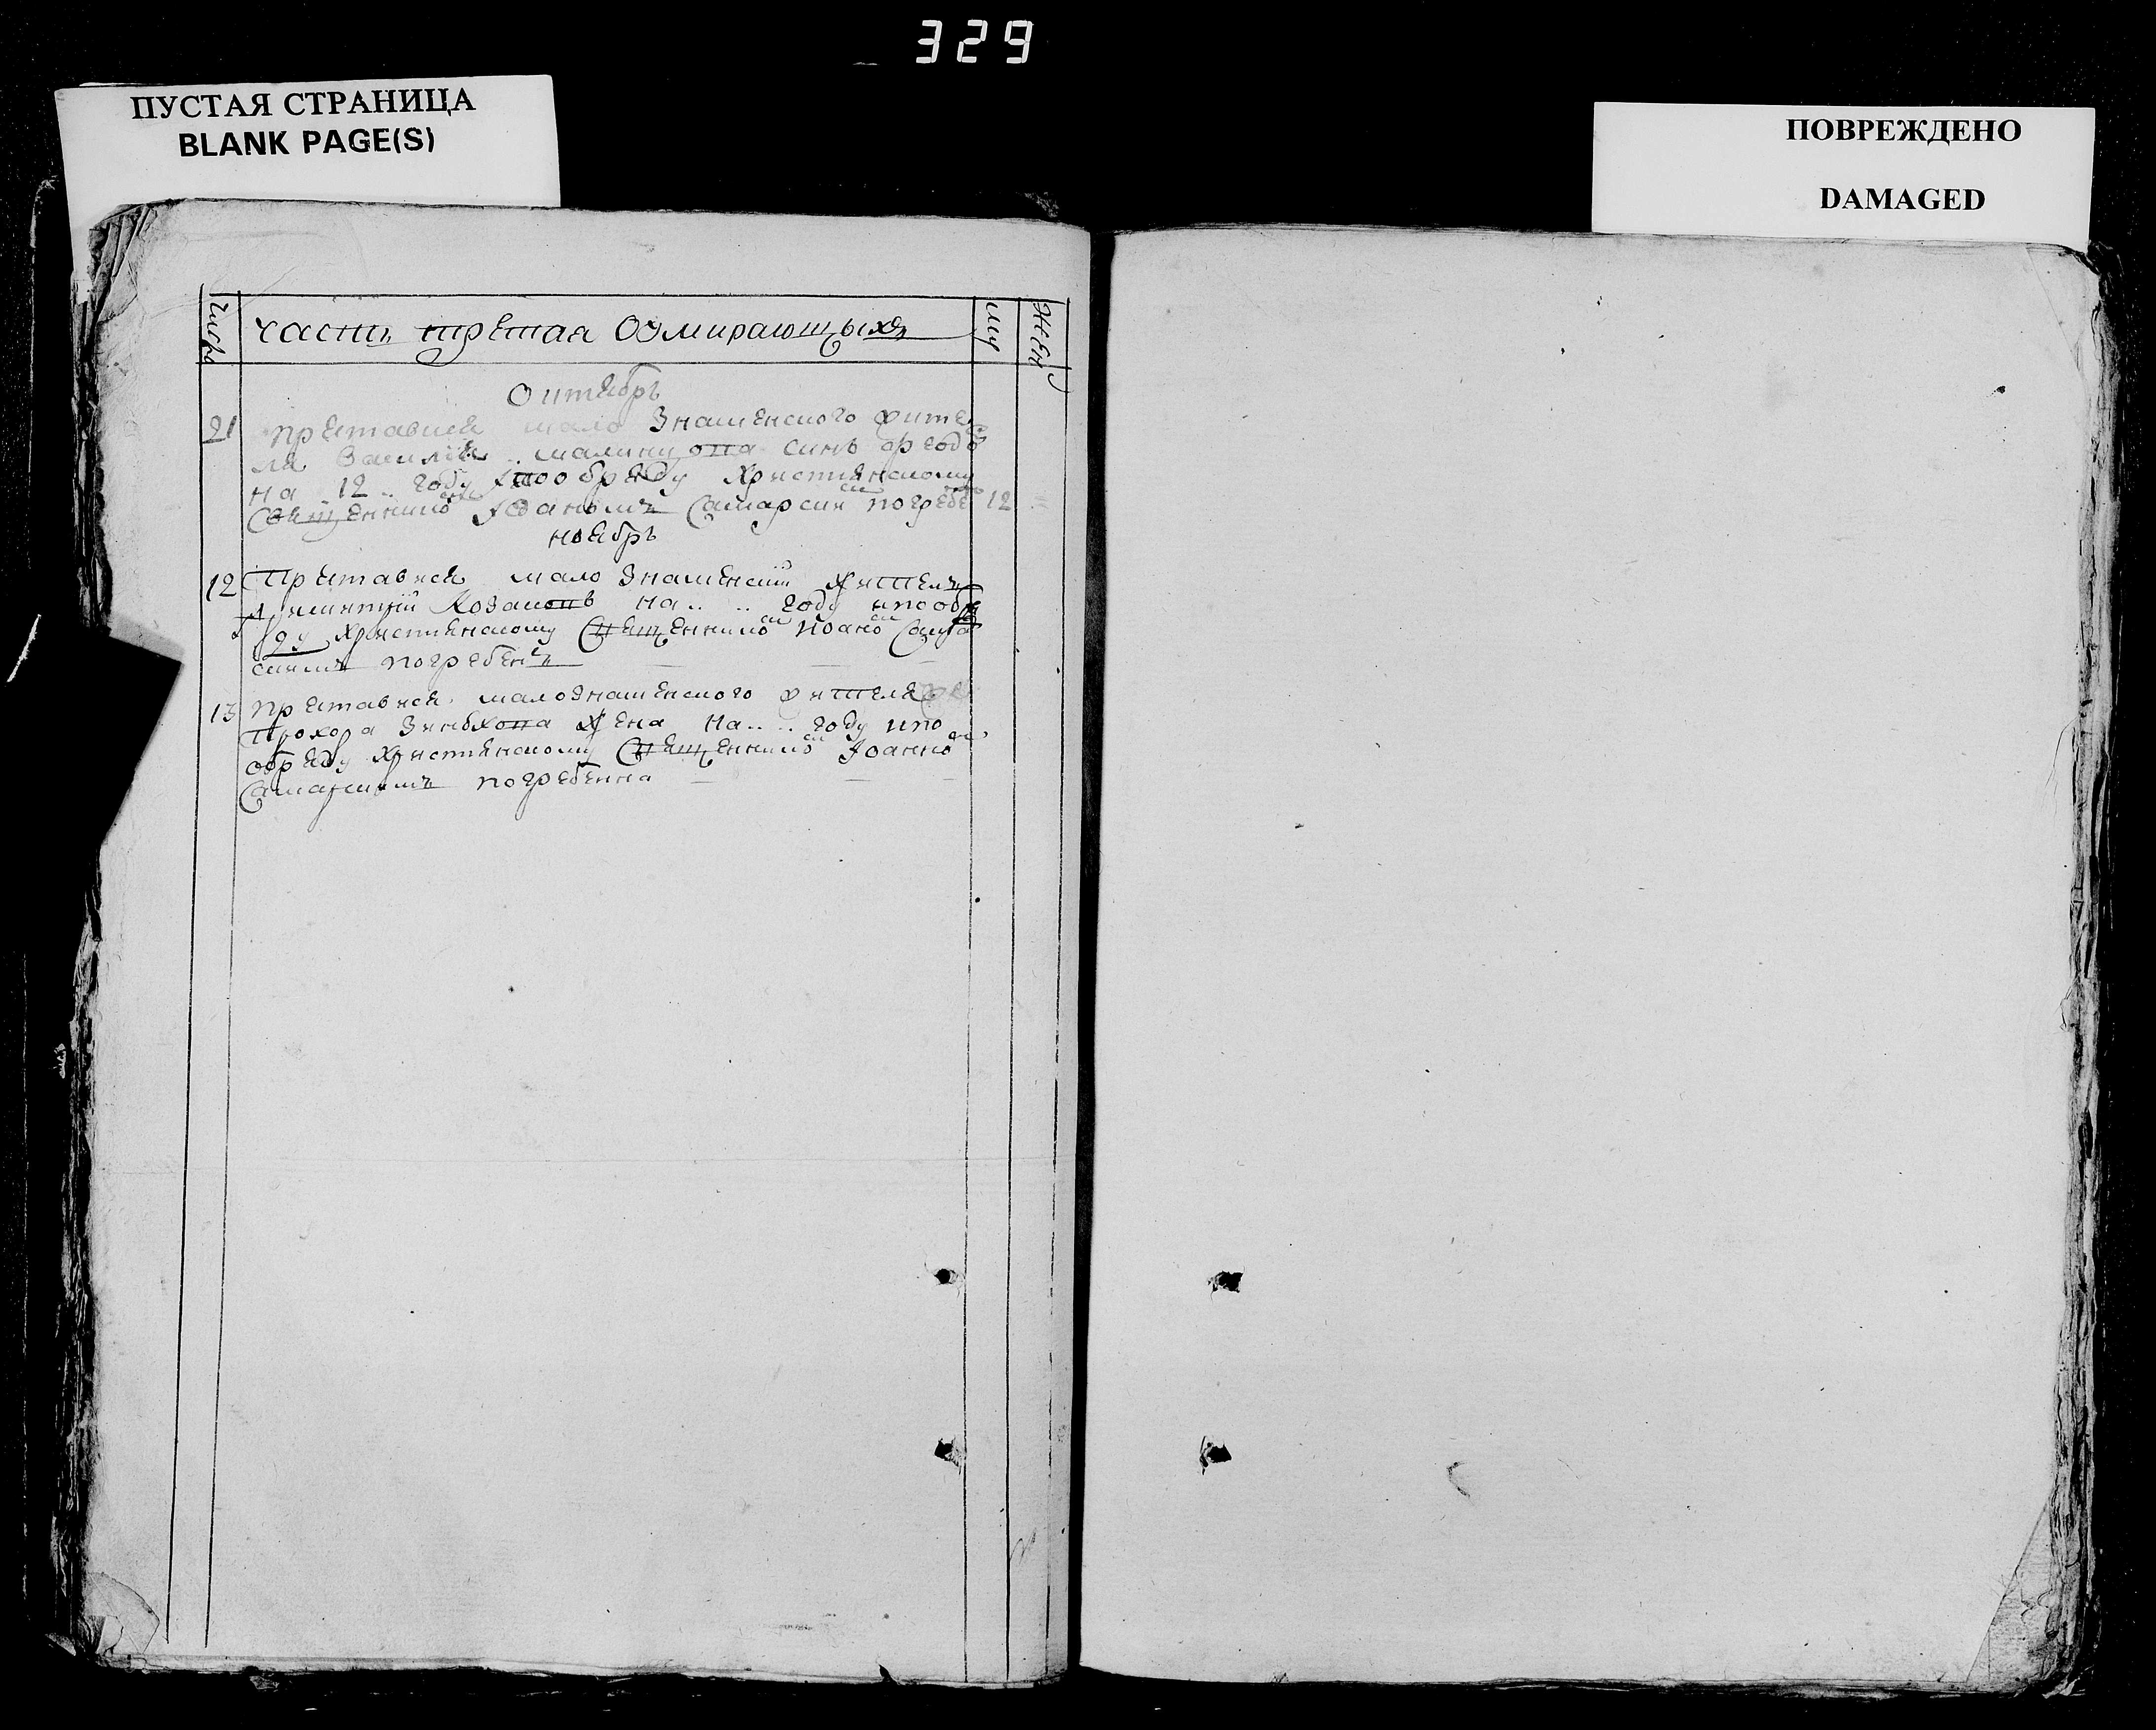 329
ПУСТАЯ СТРАНИЦА
BLANK PAGE(S)
ПОВРЕЖДЕНО
DAMAGED
Число
часть третая Оумирающыхъ
му
жен
Октябрь
21 преставися мало Знаменского жите
ля Василия синъ
на 12 году и по обряду Християнскому
Священникомъ Иоаномъ Самарским погребе 12
ноябрь
12 Преставися мало Знаменский житель
Козаковъ на .. .. году и по обря
ду Християнскому Священникомъ Иоаномъ Самар
скимъ погребенъ
13 преставися малознаменского жителя
Прохора жена на .. .. году и по
обряду Християнскому Священникомъ Иоанномъ
Самарскимъ погребенна